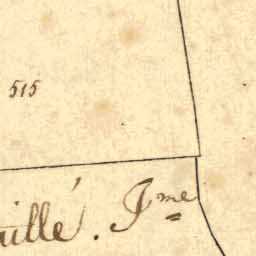 515
uillé. Jme